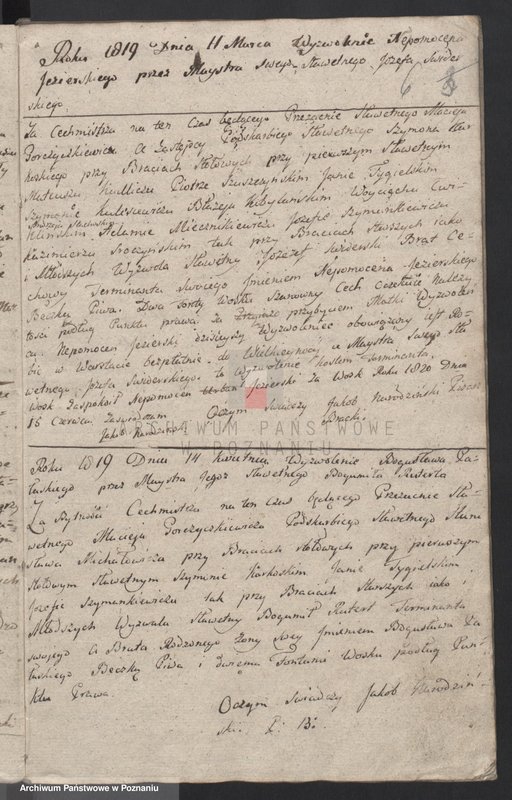 Roku 1819 Dnia 11 Marca Wyzwolenie Nepomocena
Jezierskiego przez Maystra Swego Sławetnego Józefa Swider
skiego.
6
Za Cechmistrza na ten Czas będącego Prezencie Sławetnego Macieja
Goreżyczkiewicza A Zastępcy Podskarbiego Sławetnego Szymona Kar
koskiego przy Braciach Stołowych przy pierwszym Sławetnym
Mateuszu Piotrze Janie Tygielskim
Szymonie Błażeju Kobylanskim Woyciechu
Adamie Miecznikiewiczu Józefie Szymankiewiczu
Kazimierzu Sroczynskim tak przy Braciach Starszych iako
i Młodszych Wyzwala Sławetny Józef Swiderski Brat Ce-
chowy Terminanta swoiego Imieniem Nepomocena Jezierskiego
Beczkę Piwa. Dwa Wosku Szanowny Cech
tości podług Punktu prawa za przybyciem Matki Wyzwolen
ca. Nepomocen Jezierski dzisieyszy Wyzwoleniec obowiązany iest Ro-
bić w Warstacie bezpłatnie do Wielkieynocy u Maystra Swego Sła
wetnego Józefa Swiderskiego to Wyzwolenie kosztem Terminanta.
Wosk zaspokoił Nepomocen Jezierski za Wosk Roku 1820 Dnia
15 Czerwca. Zaswiadczam Oczym Swiadczy Jakob Narodzinski Pisarz
Jakob Narodzinski Bracki.
Roku 1819 Dnia 14 kwietnia Wyzwolenie Bogusława Za-
łuskiego przez Maystra Jegoż Sławetnego Bogumiła Ruterta
Za Bytności Cechmistrza na ten czas będącego Prezencie Sła-
wetnego Macieja Goreżyczkiewicza Podskarbiego Sławetnego Stani
sława Michałowicza przy Braciach stołowych przy pierwszym
Stołowym Sławetnym Szymonie Karkoskim Janie Tygielskim
Józefie Szymankiewiczu tak przy Braciach Starszych iako i
Młodszych Wyzwala Sławetny Bogumił Rutert Terminanta
swoiego a Brata Rodzonego Zony swey Imieniem Bogusława Za
łuskiego Beczkę Piwa i dwiema Funtami Wosku podług Pun
ktu Prawa.
Oczym swiadczy Jakob Narodzin
ski P: B:
ARCHIWUM PAŃSTWOWE
W POZNANIU
Archiwum Państwowe w Poznaniu